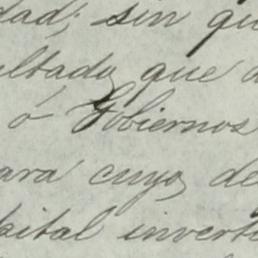 dad; sin qu
ultado que a
ó Gobiernos
ara cuyo de
pital inverti